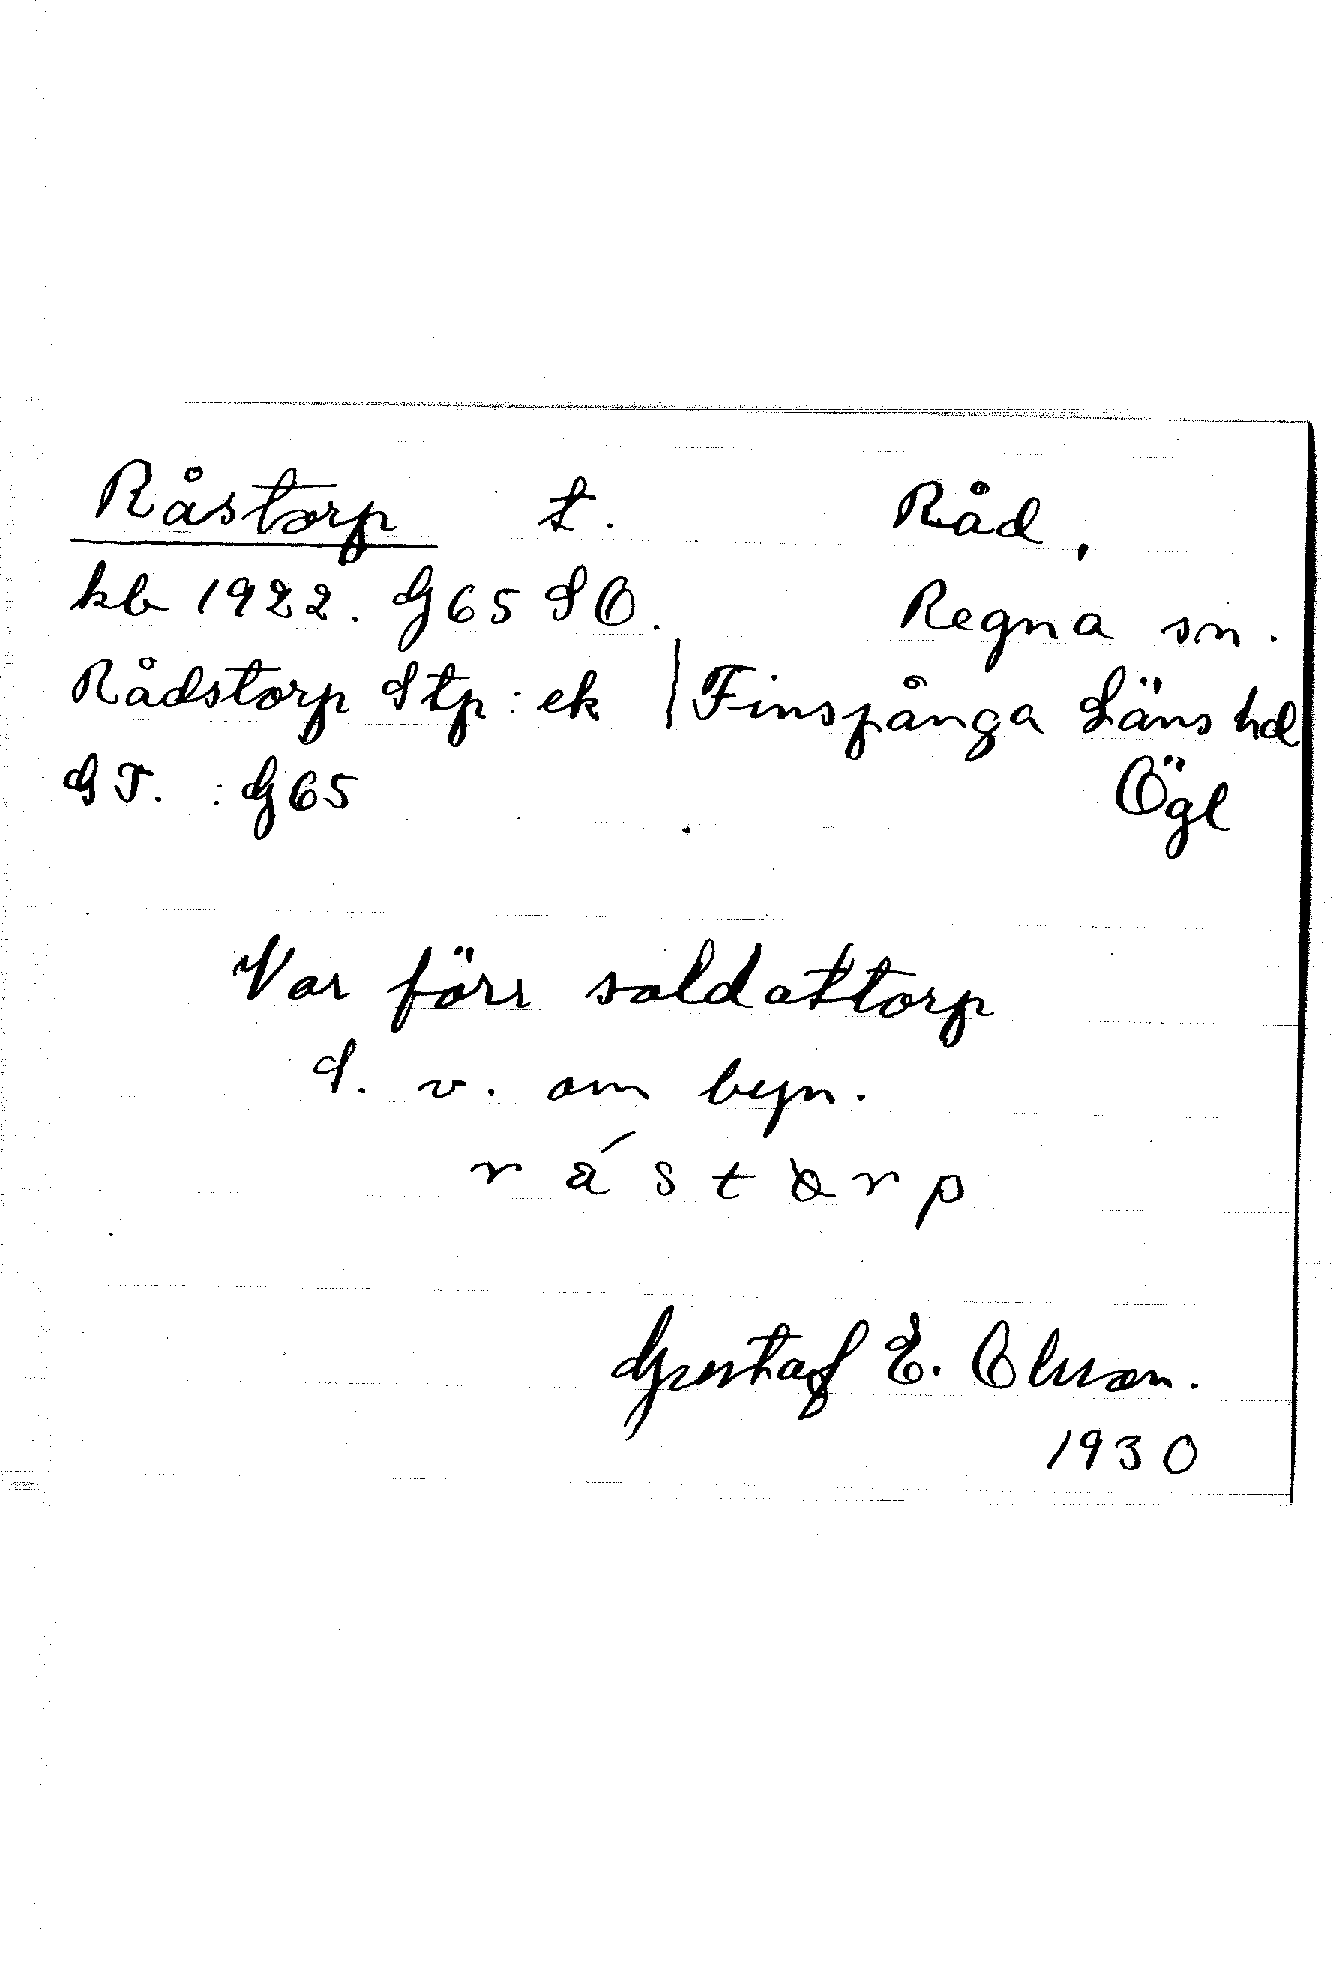 Råstorp t. Råd,
kb 1922. G65 SO. Regna sn.
Rådstorp Stp: ek / Finspånga Läns hd
GT. : G65 Ögl
Var förr soldattorp
S. v. om byn.
r ǻ s t o r p
Gustaf E. Olsson.
1930